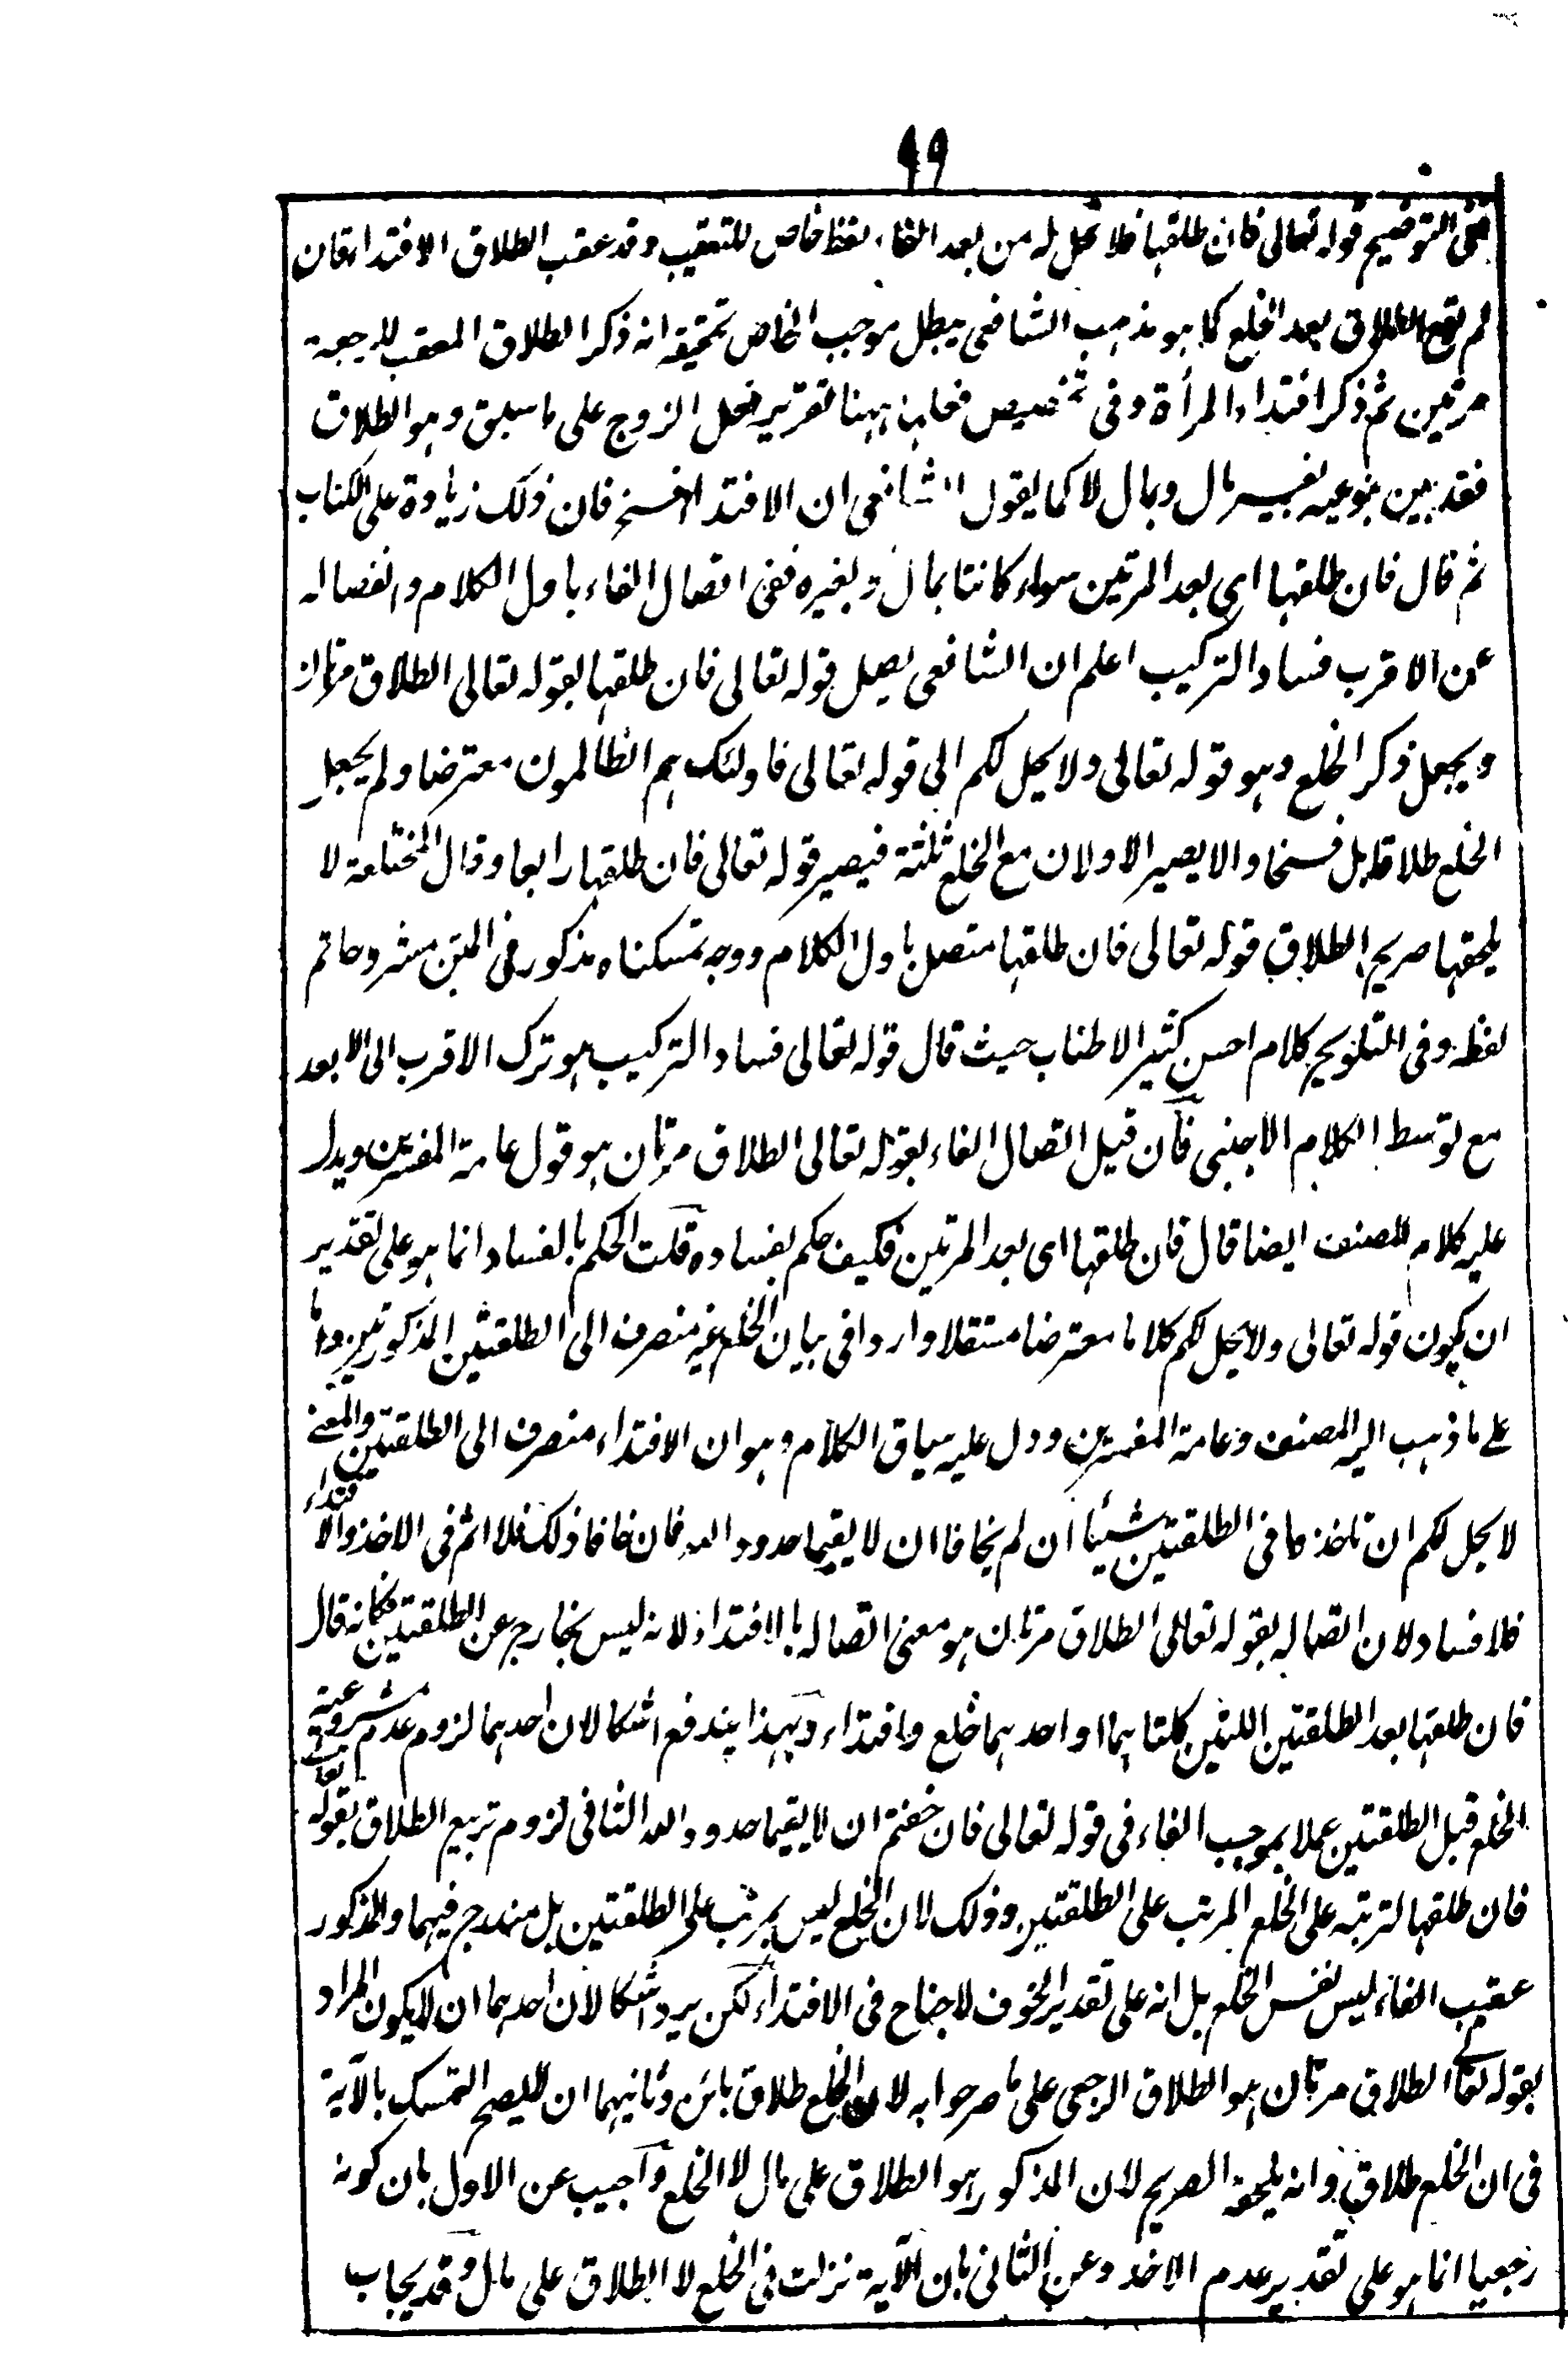 ٩٩
ففى التوضيح قوله تعالى فان طلقها فلا تحل له من بعد الفاء لفظ خاص للتعقيب وقد عقب الطلاق الافتداء فان
لم يقع الطلاق بعد الخلع كما هو مذهب الشافعى يبطل موجب الخاص تحقيقه انه ذكر الطلاق المعقب للرجعة
مرتين ثم ذكر افتداء المرأة وفى تخصيص فعلها ههنا تقرير فعل الزوج على ما سبق وهو الطلاق
فقد بين بنوعيه بغير مال وبمال لا كما يقول الشافعى ان الافتداء فسخ فان ذلك زيادة على الكتاب
ثم قال فان طلقها اى بعد المرتين سواء كانتا بمال وبغيره ففى اتصال الفاء باول الكلام وانفصاله
عن الاقرب فساد التركيب اعلم ان الشافعى يصل قوله تعالى فان طلقها بقوله تعالى الطلاق مرتان
ويجعل ذكر الخلع وهو قوله تعالى ولا يحل لكم الى قوله تعالى فاولئك هم الظالمون معترضا ولم يجعل
الخلع طلاقا بل فسخا والا يصير الاولان مع الخلع ثلثة فيصير قوله تعالى فان طلقها رابعا وقال المختلعة لا
يلحقها صريح الطلاق قوله تعالى فان طلقها متصل باول الكلام ووجه تمسكنا مذكور فى المتن مشروحا تم
لفظه وفى التلويح كلام احسن كثير الاطناب حيث قال قوله تعالى فساد التركيب هو ترك الاقرب الى الابعد
مع توسط الكلام الاجنبى فان قيل اتصال الفاء بقوله تعالى الطلاق مرتان هو قول عامة المفسرين ويدل
عليه كلام المصنف ايضا قال فان طلقها اى بعد المرتين فكيف حكم بفساده قلت الحكم بالفساد انما هو على تقدير
ان يكون قوله تعالى ولا يحل لكم كلاما معترضا مستقلا واردا فى بيان الخلع غير منصرف الى الطلقتين المذكورتين واما
على ما ذهب اليه المصنف وعامة المفسرين ودل عليه سياق الكلام وهو ان الافتداء منصرف الى الطلقتين والمعنى
لا يحل لكم ان تاخذوا فى الطلقتين شيئا ان لم يخافا ان لا يقيما حدود الله فان خافا ذلك فلا اثم فى الاخذ والافتداء
فلا فساد لان اتصاله بقوله تعالى الطلاق مرتان هو معنى اتصاله بالافتداء لانه ليس بخارج عن الطلقتين فكانه قال
فان طلقها بعد الطلقتين اللتين كلتاهما او احدهما خلع وافتداء وبهذا يندفع اشكالان احدهما لزوم عدم مشروعية
الخلع قبل الطلقتين عملا بموجب الفاء فى قوله تعالى فان خفتم ان لا يقيما حدود الله الثانى لزوم تربيع الطلاق بقوله تعالى
فان طلقها لترتبه على الخلع المرتب على الطلقتين وذلك لان الخلع ليس بمرتب على الطلقتين بل مندرج فيهما والمذكور
عقيب الفاء ليس نفس الخلع بل انه على تقدير الخوف لا جناح فى الافتداء لكن يرد اشكالان احدهما ان لا يكون المراد
بقوله تعالى الطلاق مرتان هو الطلاق الرجعى على ما صرحوا به لان الخلع طلاق بائن وثانيهما ان لا يصح التمسك بالآية
فى ان الخلع طلاق وانه يلحقه الصريح لان المذكور هو الطلاق على مال لا الخلع واجيب عن الاول بان كونه
رجعيا انما هو على تقدير عدم الاخذ وعن الثانى بان الآية نزلت فى الخلع لا الطلاق على مال وقد يجاب